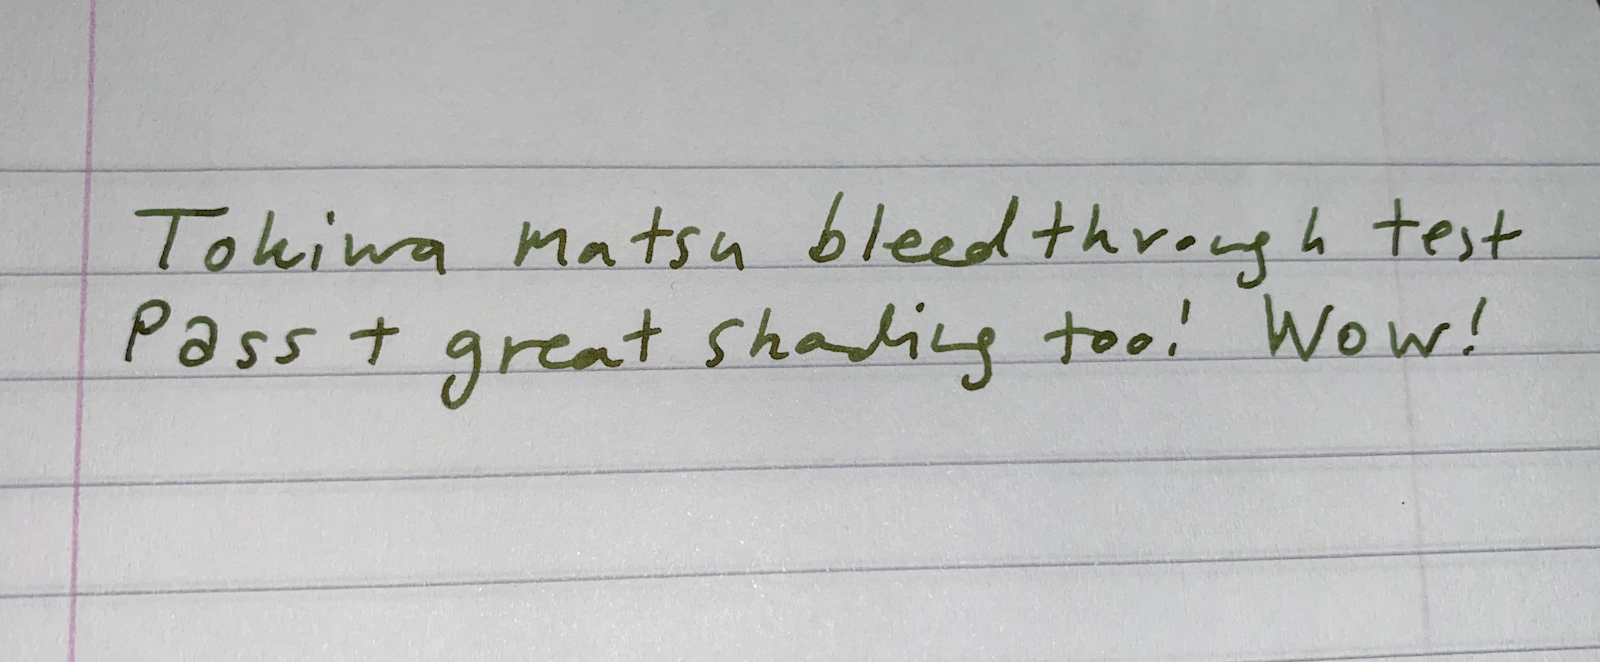 Tokiwa matsu bleedthrough test
Pass + great shading too! Wow!